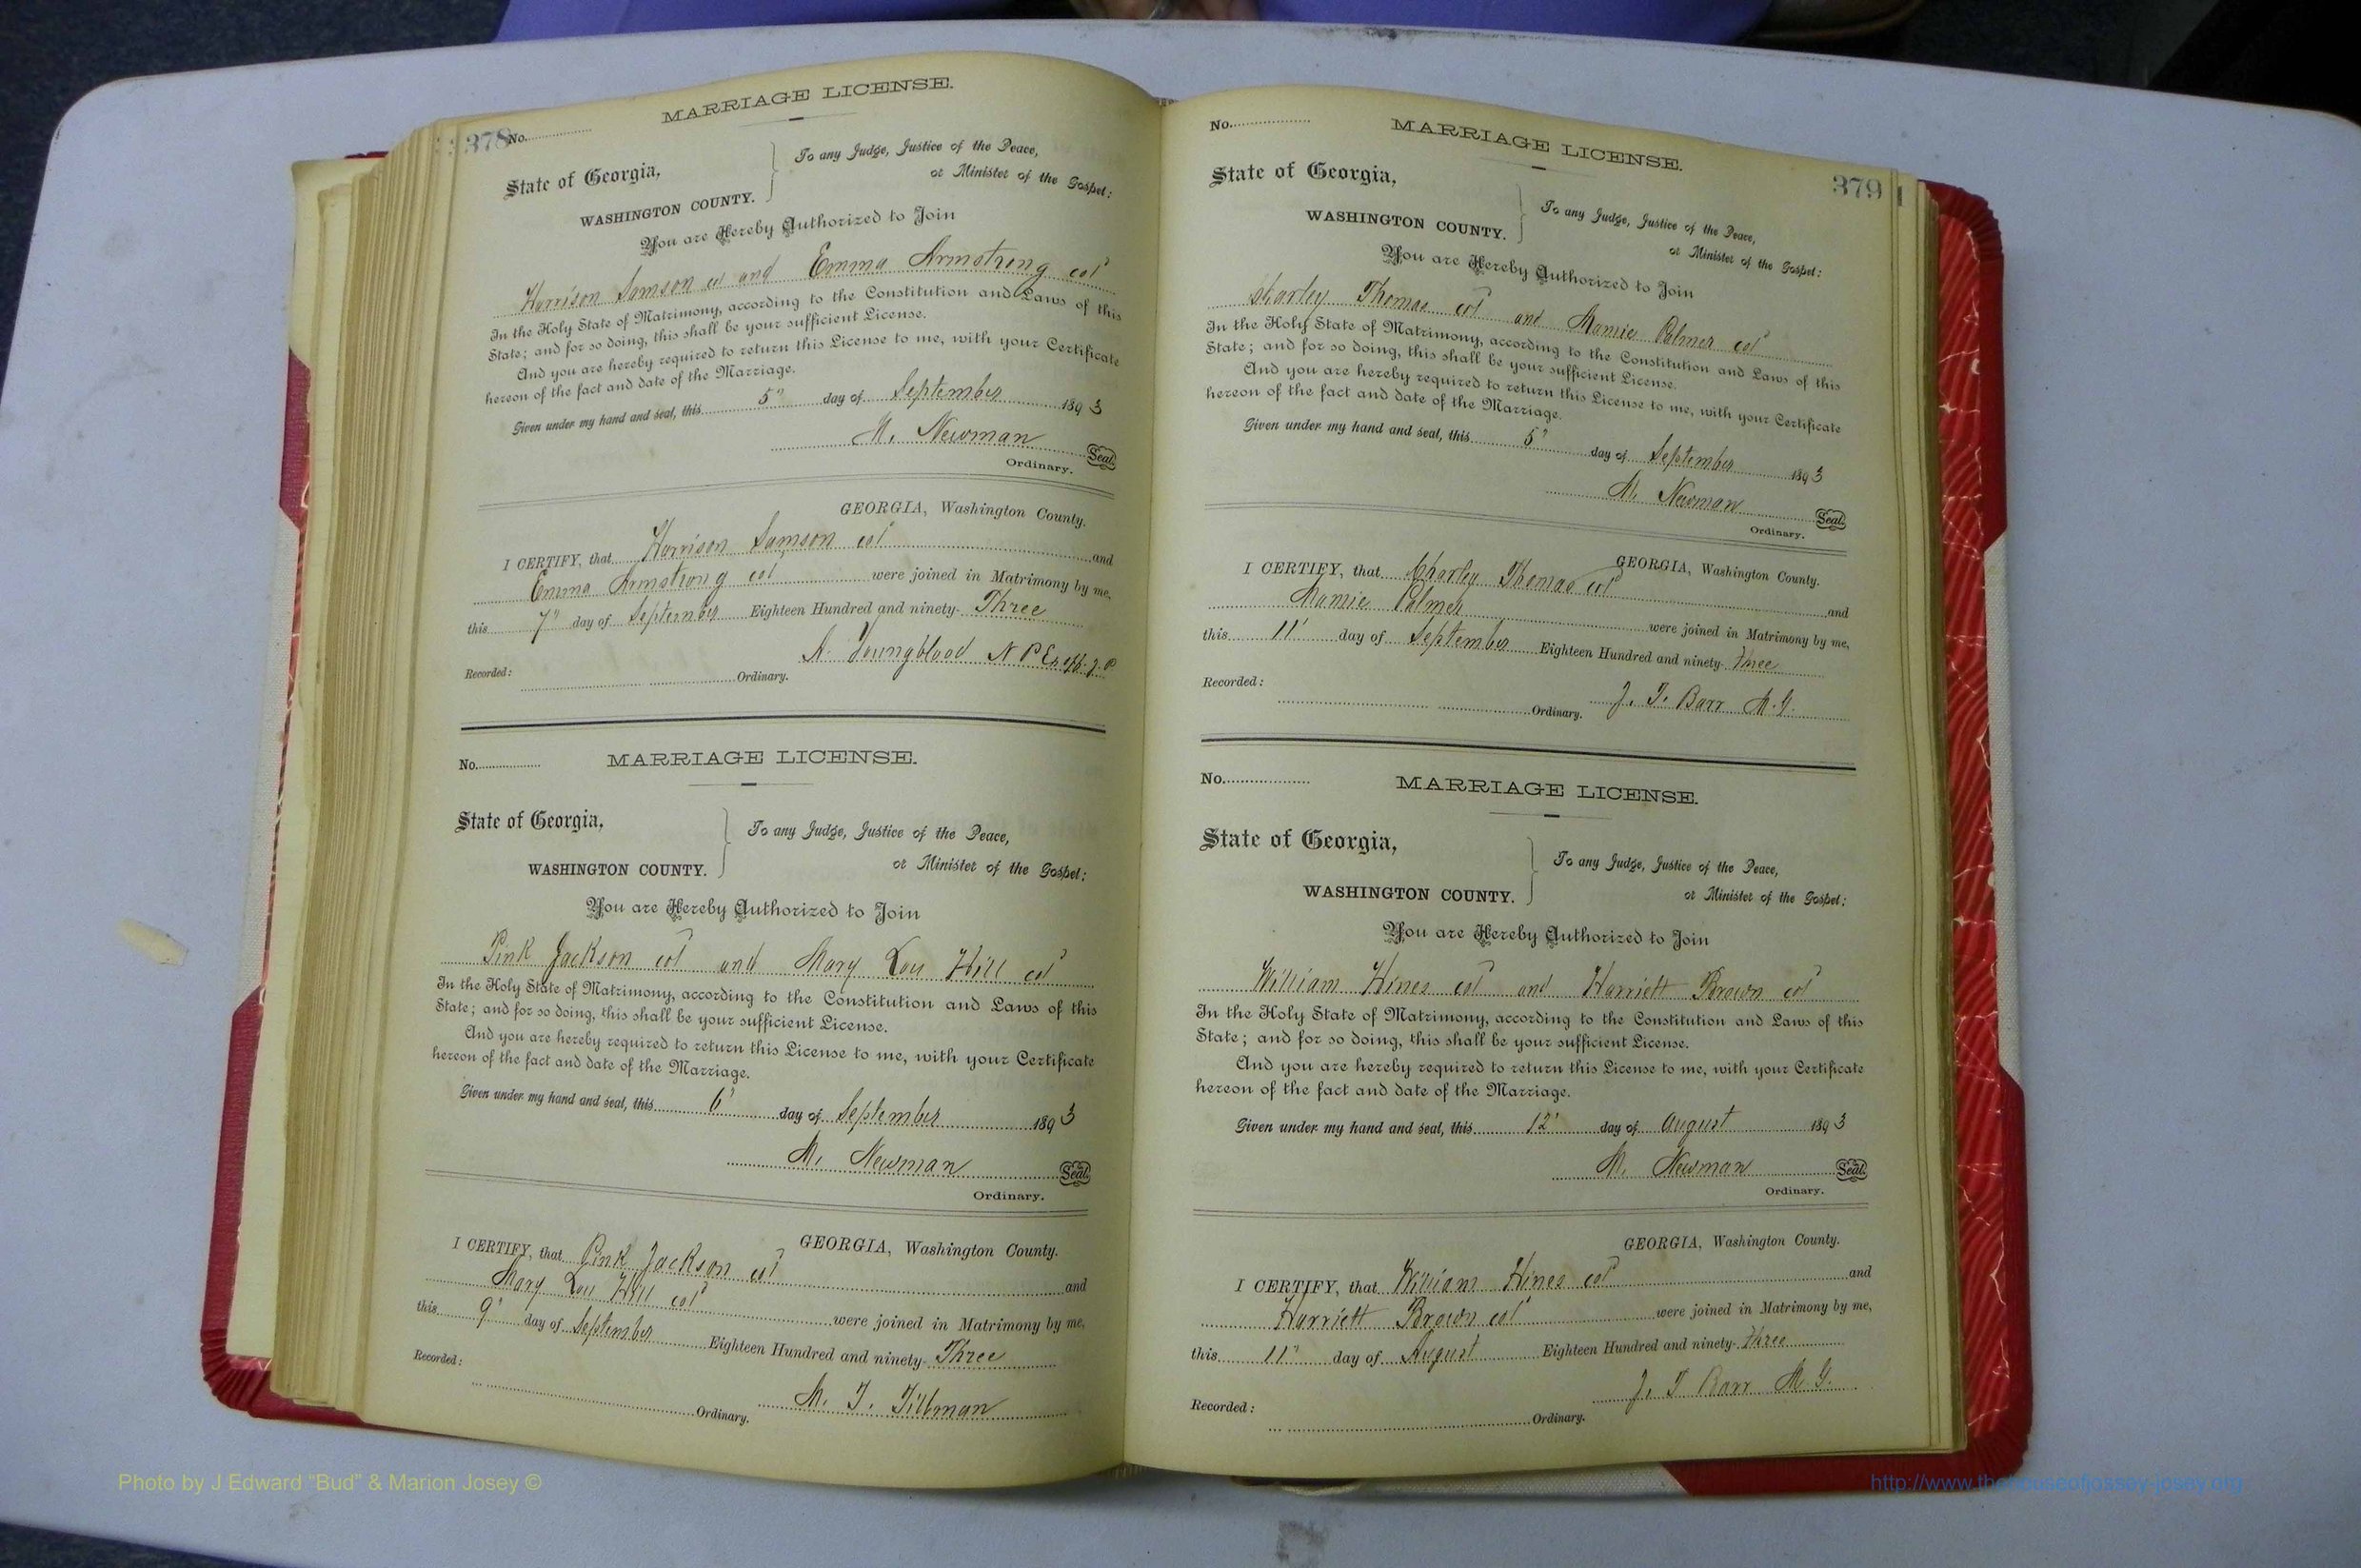 378
No.
MARRIAGE LICENSE.
State of Georgia,
WASHINGTON COUNTY.
To any Judge, Justice of the Peace,
or Minister of the Gospel:
You are Hereby Authorized to Join
Harrison Samson col and Emma Armstrong col
In the Holy State of Matrimony, according to the Constitution and Laws of this
State; and for so doing, this shall be your sufficient License.
And you are hereby required to return this License to me, with your Certificate
hereon of the fact and date of the Marriage.
Given under my hand and seal, this 5" day of September 1893
M. Newman Seal.
Ordinary.
GEORGIA, Washington County.
I CERTIFY, that Harrison Samson col and
Emma Armstrong col were joined in Matrimony by me,
this 7" day of September Eighteen Hundred and ninety- Three
A. Youngblood N P Ex off. J. P
Recorded: Ordinary.
No.
MARRIAGE LICENSE.
State of Georgia,
WASHINGTON COUNTY.
To any Judge, Justice of the Peace,
or Minister of the Gospel:
You are Hereby Authorized to Join
Pink Jackson col and Mary Lou Hill col
In the Holy State of Matrimony, according to the Constitution and Laws of this
State; and for so doing, this shall be your sufficient License.
And you are hereby required to return this License to me, with your Certificate
hereon of the fact and date of the Marriage.
Given under my hand and seal, this 6' day of September 1893
M. Newman Seal.
Ordinary.
GEORGIA, Washington County.
I CERTIFY, that Pink Jackson col and
Mary Lou Hill col were joined in Matrimony by me,
this 9' day of September Eighteen Hundred and ninety- Three
M. T. Tillman
Recorded: Ordinary.
No.
MARRIAGE LICENSE.
379
State of Georgia,
WASHINGTON COUNTY.
To any Judge, Justice of the Peace,
or Minister of the Gospel:
You are Hereby Authorized to Join
Charley Thomas col and Mamie Palmer col
In the Holy State of Matrimony, according to the Constitution and Laws of this
State; and for so doing, this shall be your sufficient License.
And you are hereby required to return this License to me, with your Certificate
hereon of the fact and date of the Marriage.
Given under my hand and seal, this 5" day of September 1893
M. Newman Seal.
Ordinary.
GEORGIA, Washington County.
I CERTIFY, that Charley Thomas col and
Mamie Palmer were joined in Matrimony by me,
this 11' day of September Eighteen Hundred and ninety- three
J. T. Barr M.G.
Recorded: Ordinary.
No.
MARRIAGE LICENSE.
State of Georgia,
WASHINGTON COUNTY.
To any Judge, Justice of the Peace,
or Minister of the Gospel:
You are Hereby Authorized to Join
William Hines col and Harriett Brown col
In the Holy State of Matrimony, according to the Constitution and Laws of this
State; and for so doing, this shall be your sufficient License.
And you are hereby required to return this License to me, with your Certificate
hereon of the fact and date of the Marriage.
Given under my hand and seal, this 12' day of August 1893
M. Newman Seal.
Ordinary.
GEORGIA, Washington County.
I CERTIFY, that William Hines col and
Harriett Brown col were joined in Matrimony by me,
this 11" day of August Eighteen Hundred and ninety- three
J. T Barr M G.
Recorded: Ordinary.
Photo by J Edward “Bud” & Marion Josey ©
http://www.thehouseofjossey-josey.org